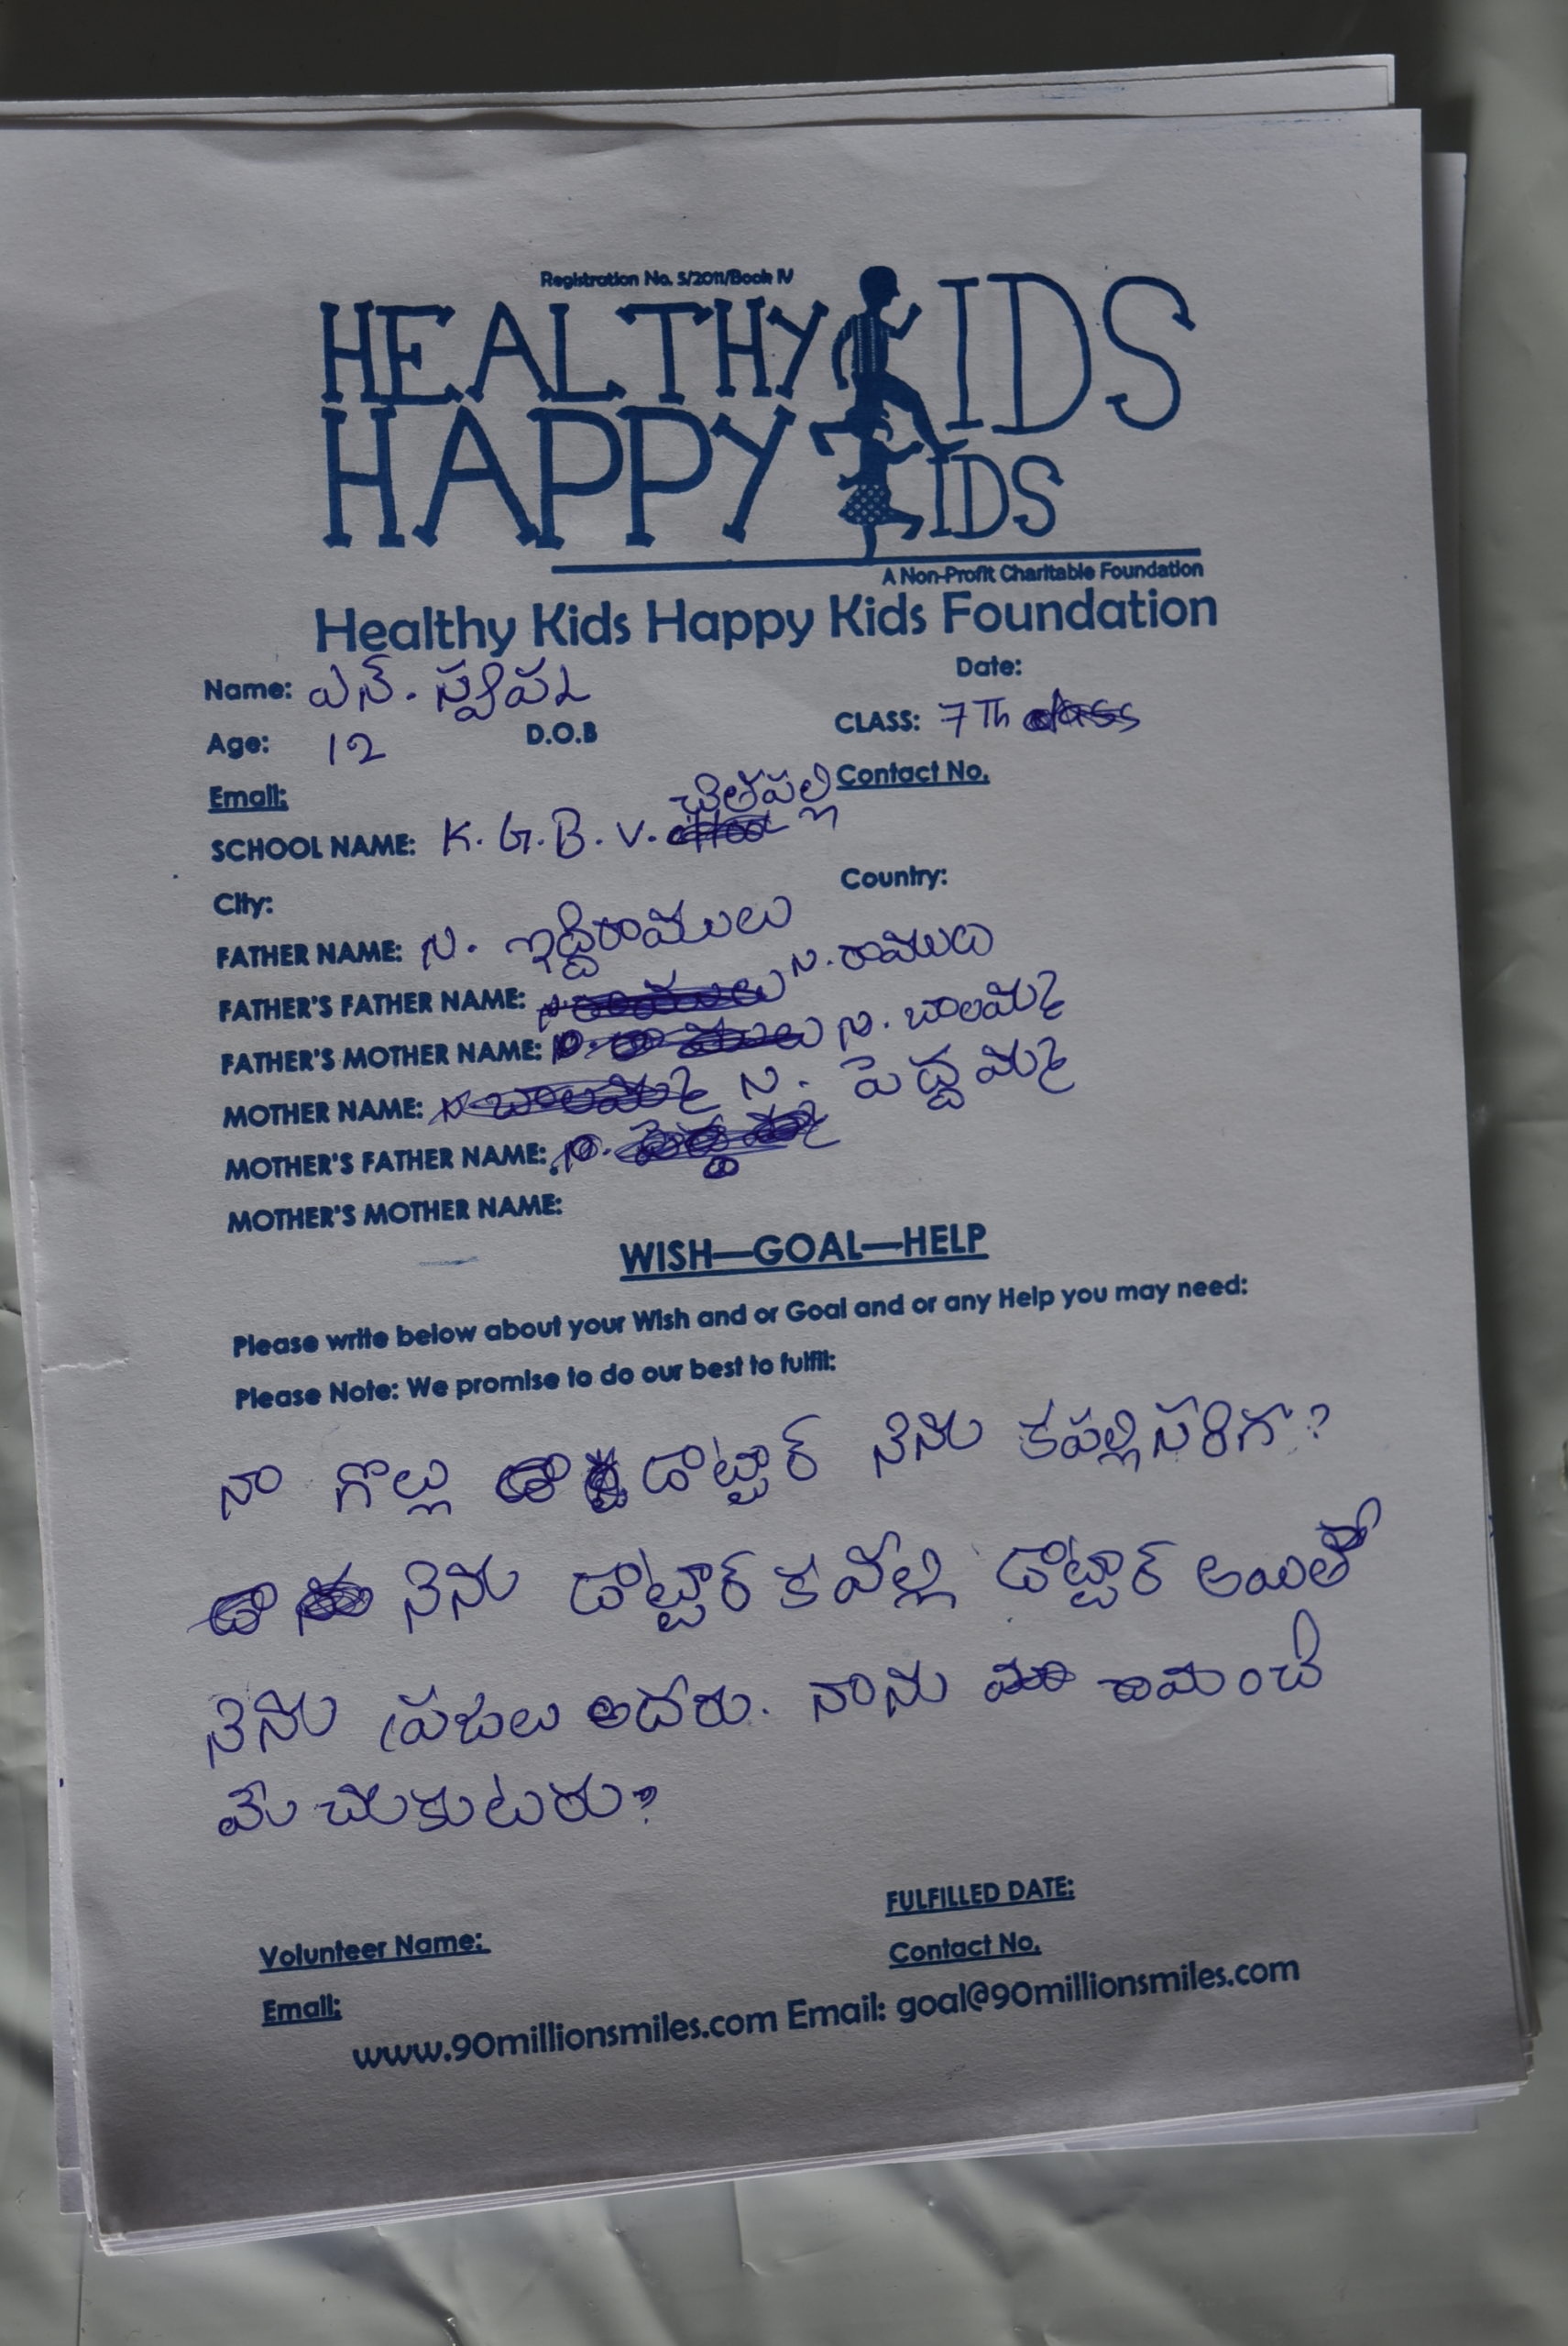 Registration No. 5/2011/Book IV
HEALTHY KIDS
HAPPY KIDS
A Non-Profit Charitable Foundation
Healthy Kids Happy Kids Foundation
Name: ఎన్. స్వప్న Date:
Age: 12 D.O.B CLASS: 7Th
Email: Contact No.
SCHOOL NAME: K.G.B.V.
City: Country:
FATHER NAME: న. ఇద్దిరాములు
FATHER'S FATHER NAME: న. రాములు
FATHER'S MOTHER NAME: న. బాలమ్మ
MOTHER NAME: న. పెద్దమ్మ
MOTHER'S FATHER NAME:
MOTHER'S MOTHER NAME:
WISH—GOAL—HELP
Please write below about your Wish and or Goal and or any Help you may need:
Please Note: We promise to do our best to fulfil:
నా గొల్లు డాట్టార్ నెను కపల్లిసరిగా?
నెను డాట్టార్ కవెల్లి డాట్టార్ అయితే
నెను ప్రజలు అదరు. నాను
మెచుకుటరు?
FULFILLED DATE:
Volunteer Name: Contact No.
Email:
www.90millionsmiles.com Email: goal@90millionsmiles.com